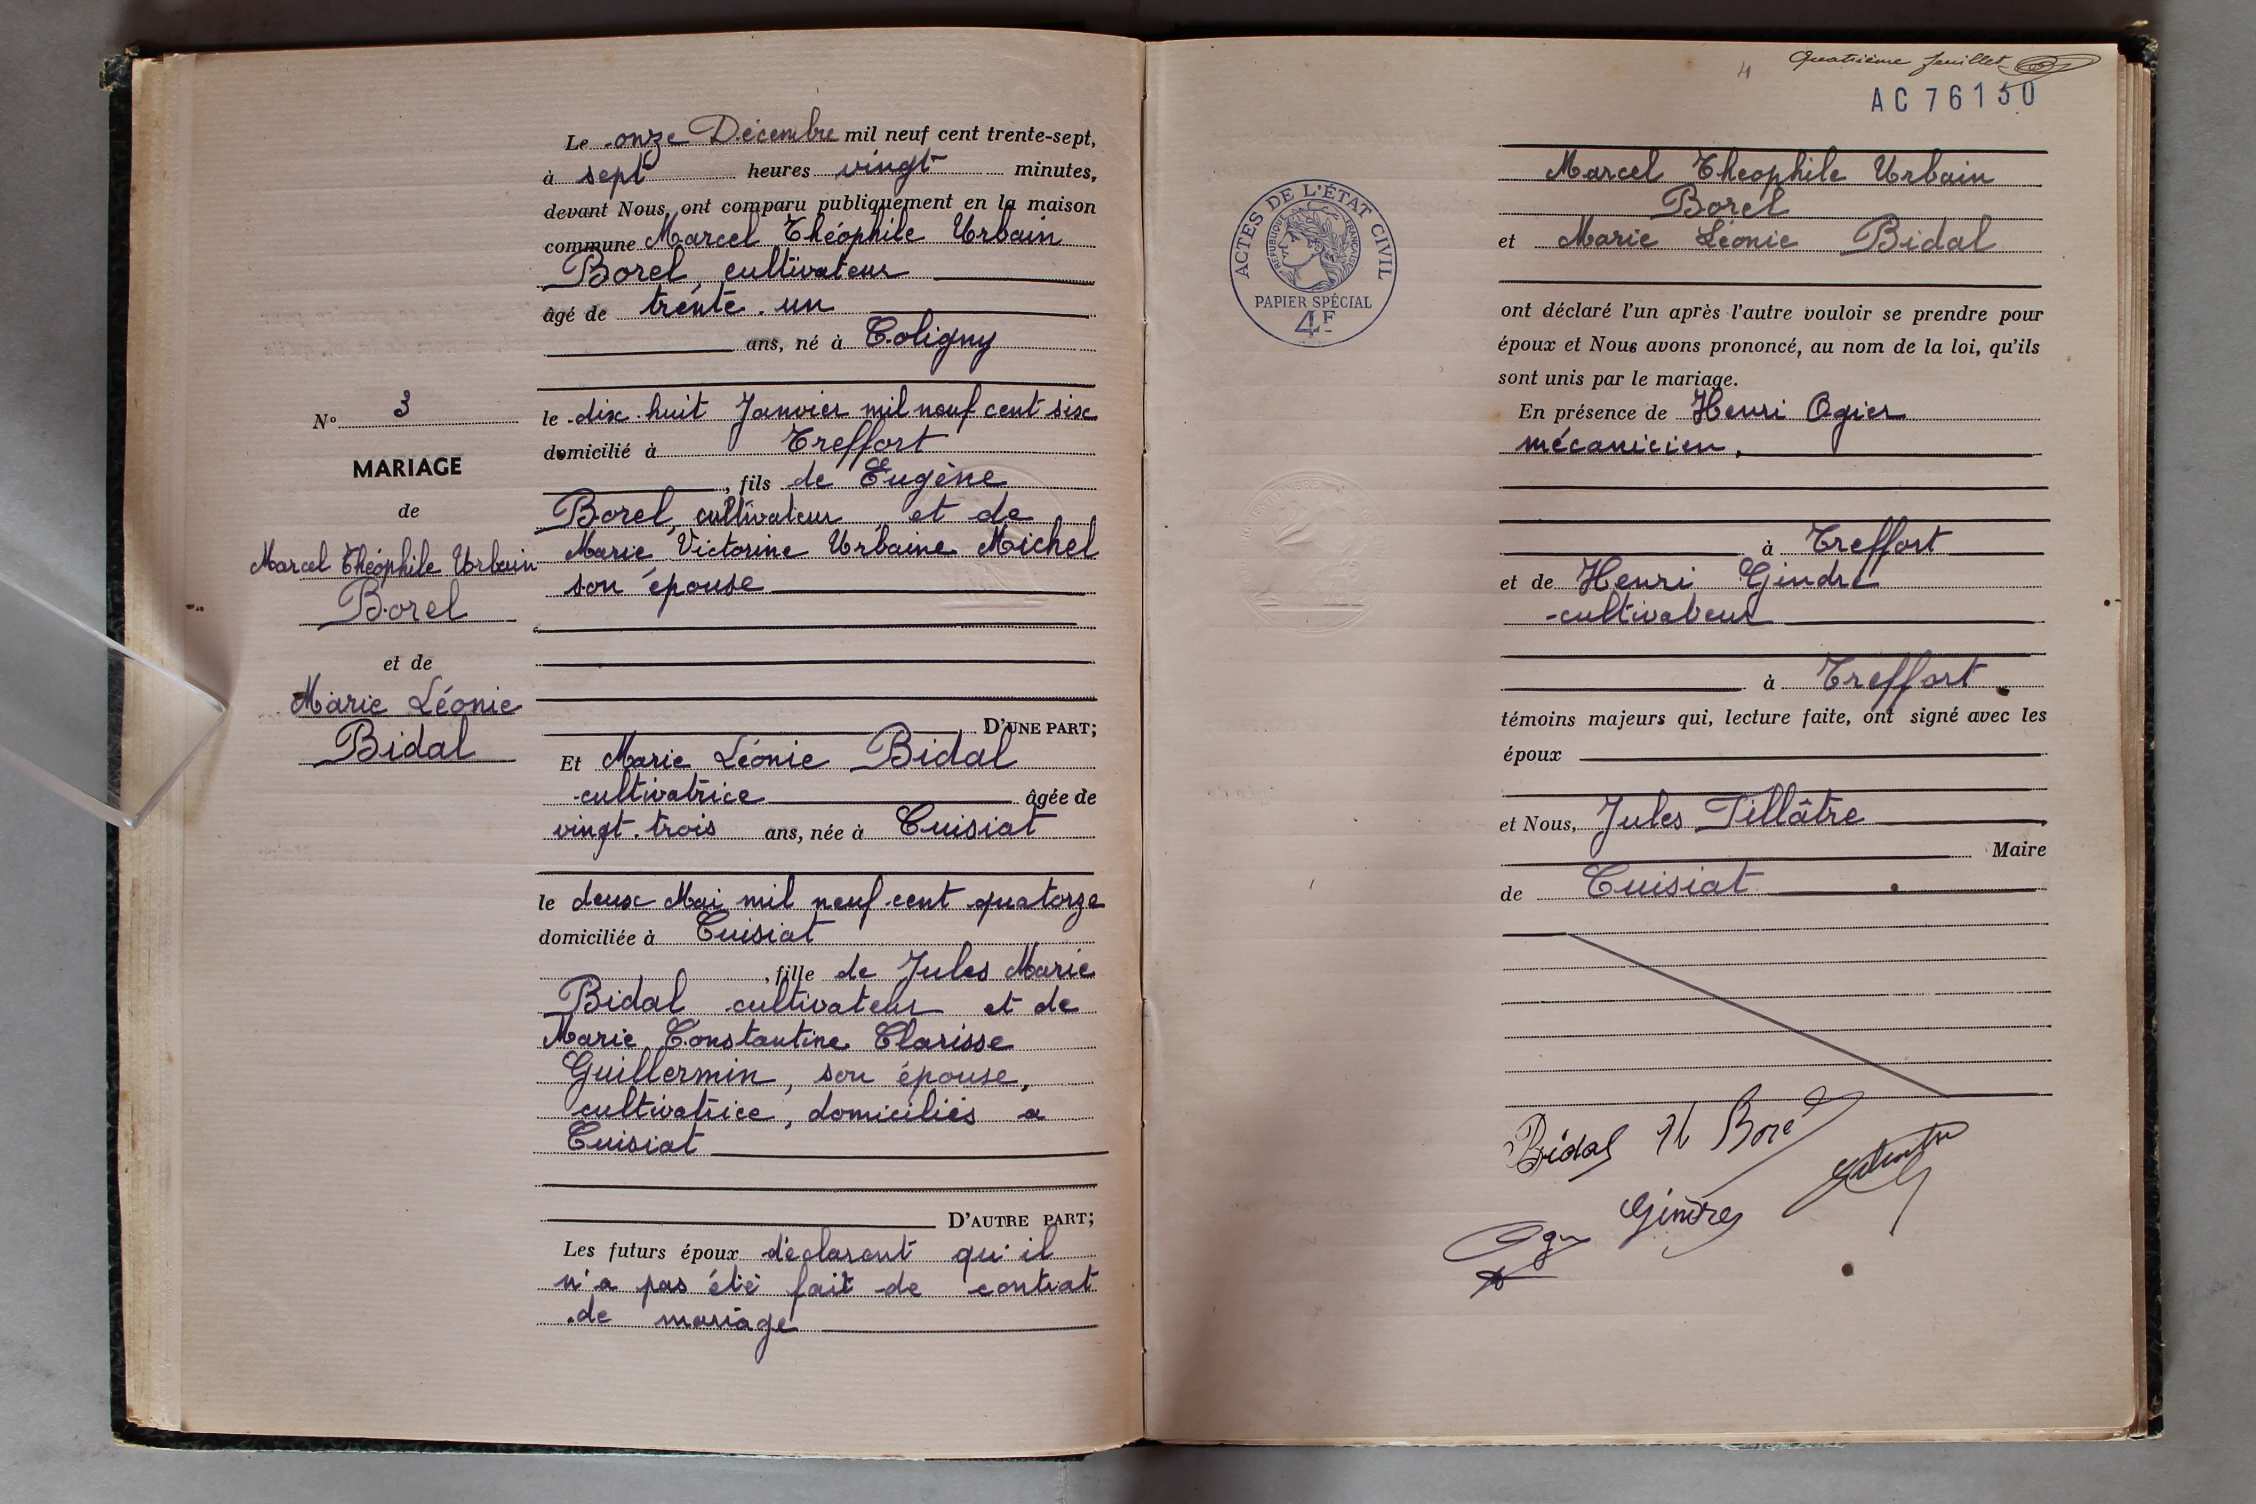 N° 3
MARIAGE
de
Marcel Théophile Urbain
Borel
et de
Marie Léonie
Bidal
Le onze Décembre mil neuf cent trente-sept,
à sept heures vingt minutes,
devant Nous, ont comparu publiquement en la maison
commune Marcel Théophile Urbain
Borel, cultivateur
âgé de trente-un
ans, né à Coligny
le dix-huit Janvier mil neuf cent six
domicilié à Treffort
, fils de Eugène
Borel, cultivateur et de
Marie Victorine Urbaine Michel
son épouse
D'UNE PART;
Et Marie Léonie Bidal
cultivatrice âgée de
vingt-trois ans, née à Cuisiat
le deux Mai mil neuf cent quatorze
domiciliée à Cuisiat
, fille de Jules Marie
Bidal cultivateur et de
Marie Constantine Clarisse
Guillermin, son épouse,
cultivatrice, domiciliés a
Cuisiat
D'AUTRE PART;
Les futurs époux déclarent qu'il
n'a pas été fait de contrat
de mariage
4 Quatrième feuillet
AC 76130
ACTES DE L'ÉTAT CIVIL
RÉPUBLIQUE FRANÇAISE
PAPIER SPÉCIAL
4F
Marcel Theophile Urbain
Borel
et Marie Léonie Bidal
ont déclaré l'un après l'autre vouloir se prendre pour
époux et Nous avons prononcé, au nom de la loi, qu'ils
sont unis par le mariage.
En présence de Henri Ogier
mécanicien,
à Treffort
et de Henri Gindre
cultivateur
à Treffort
témoins majeurs qui, lecture faite, ont signé avec les
époux
et Nous, Jules Tillâtre
Maire
de Cuisiat
Bidal M Borel
Gindre